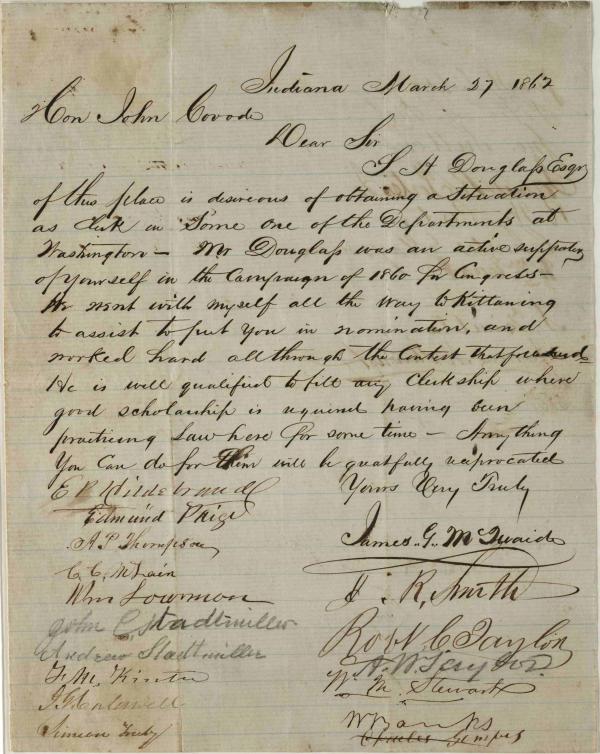 Indiana March 27 1862
Hon John Covode
Dear Sir
S A Douglass Esqr
of this place is desireous of obtaining a Situation
as Clerk in Some one of the Departments at
Washington — Mr Douglass was an active supporter
of yourself in the Campaign of 1860 for Congress —
He went with myself all the way to Kittaning
to assist to put you in nomination, and
worked hard all through the Contest that followed
He is well qualified to fill any Clerkship where
good scholarship is required having been
practicing Law here for some time — Anything
You Can do for him will be greatfully reciprocated
Yours Very Truly
E P Hildebrand
Edmund Paige
A P Thompson
C. C. McLain
Wm Lowman
John C Stadtmiller
Andrew Stadtmiller
F. M. Kinter
J. G. Caldwell
Simeon Truby
James. G. McQuaide
J. R. Smith
Robt. C Taylor
A. W. Taylor
W. M. Stewart
W Banks
Charles